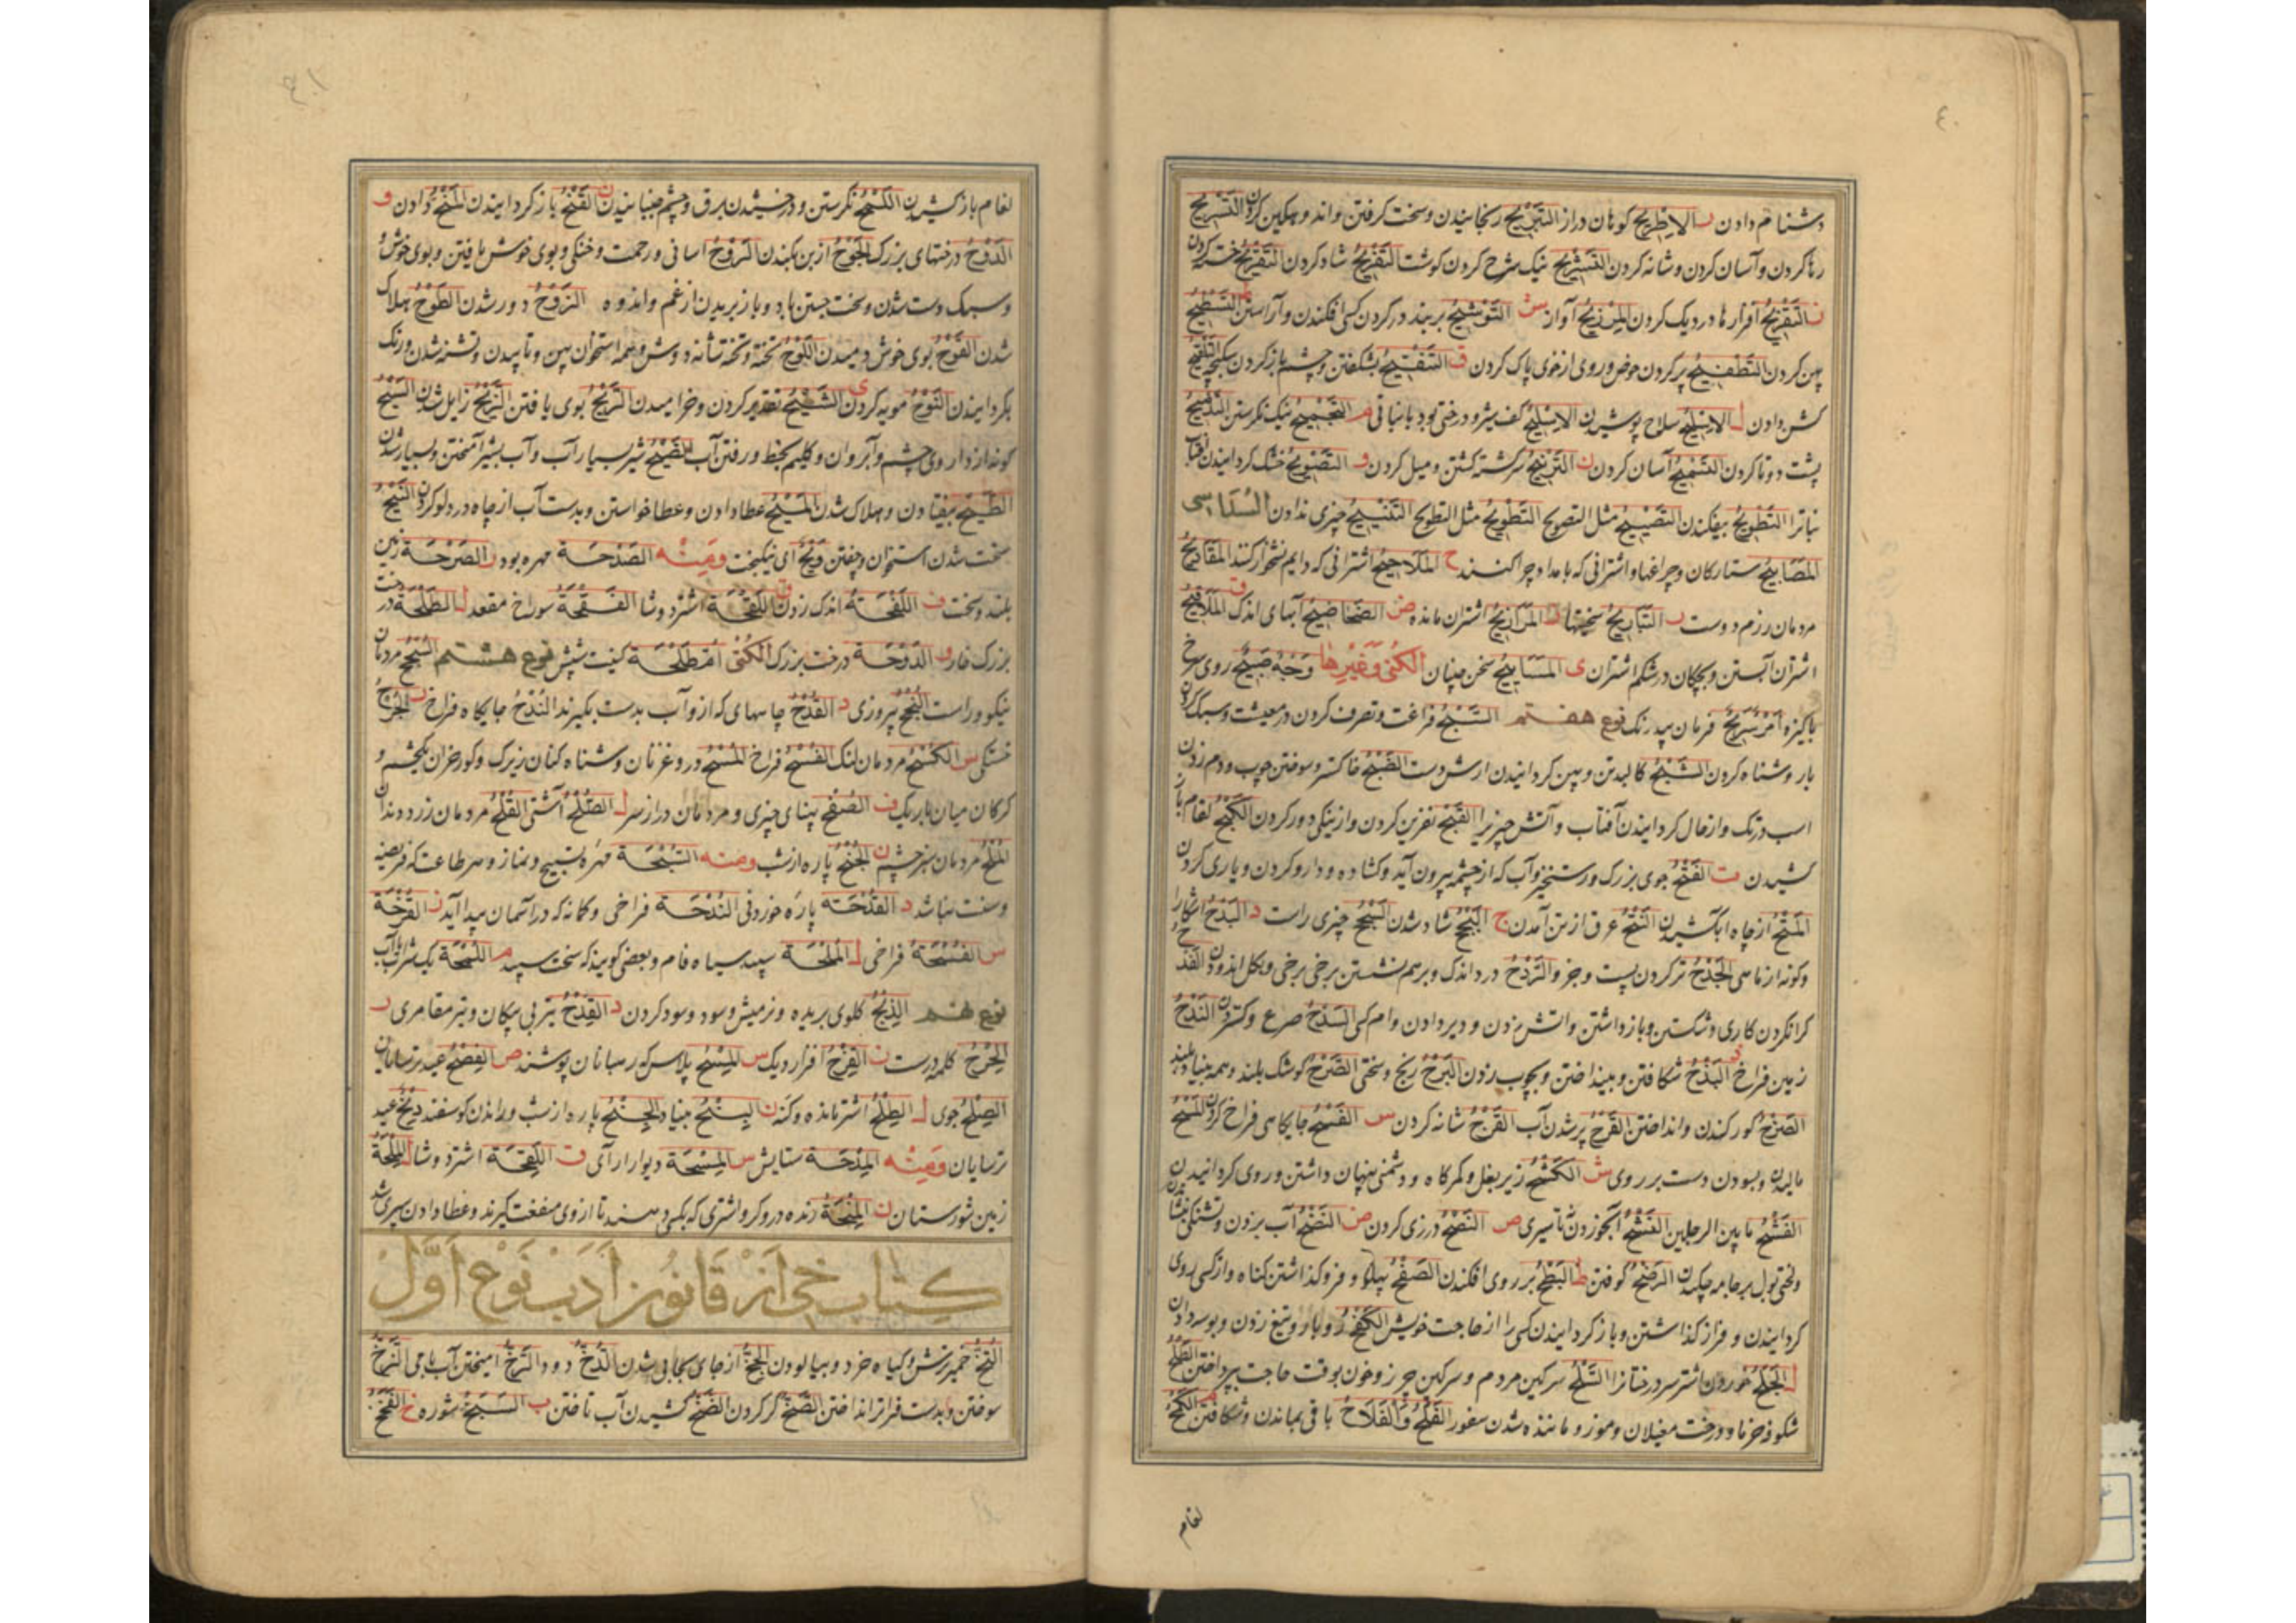 ٤٠
دشنام دادن ر الاطریح کوهان دراز التبریح رنجانیدن و سخت گرفتن و اندوهگین کردن التسریح
رها کردن و آسان کردن و شانه کردن التشریح نیک شرح کردن گوشت التفریح شاد کردن التقریح خسته کردن
ز التقزیح افزارها در دیک کردن المریح آواز ش التوشیح بربند در گردن کسی افکندن و آراستن ط التسطیح
پهن کردن التطفیح پر کردن حوض و روی از خوی پاک کردن ق التفتیح بشکفتن و چشم باز کردن سگ بچه التلقیح
کشن دادن ل سلاح پوشیدن م نیک نکرستن
پشت دو تا کردن آسان کردن ن الترنیح سرکشته کشتن و میل کردن و التصویح خشک کردانیدن آفتاب
نباترا التطویح بیفکندن التصییح مثل التصویح التطویح مثل التطویح چیزی ندادن السداسی
المصابیح ستارکان و چراغها و اشترانی که بامداد چرا کنند ح اشترانی که دایم نشخوار کنند
مردمان رزم دوست ر التباریح سختیها ز المرازیح اشتران مانده ض الضحاضیح آبهای اندک ق الملاقیح
اشتران آبستن و بچکان در شکم اشتران ی المساییح سخن چینان الکنی و غیرها وجه صبیح روی سرخ
پاکیزه امر سریح فرمان بیدرنک نوع هفتم السبح فراغت و تصرف کردن در معیشت و سبک کردن
بار و شناه کردن الشبح کالبد تن و پهن کردانیدن ارش دست الضبح خاکستر و سوختن چوب و دم زدن
اسب در تک و از حال کردانیدن آفتاب و آتش چیزیرا القبح نفرین کردن و از نیکی دور کردن الکبح لغام باز
کشیدن ت الفتح جوی بزرک و رستخیز و آب که از چشمه بیرون آید و کشاده و دارو کردن و یاری کردن
المتح از چاه آب کشیدن النتح عرق از تن آمدن ج البجح شاد شدن السجح چیزی راست د البدح آشکارا
و کونه از ماهی الجدح تر کردن پست و جز و الردح درد اندک و بر هم نشستن برخی برخی و بکل اندودن الفدح
کرانکردن کاری و شکستن و بازداشتن و آتش زدن و دیر دادن وام کسی السدح صرع و کستردن الندح
زمین فراخ ذ البذح شکافتن و بینداختن و بچوب زدن ر البرح رنج و سختی الصرح کوشک بلند و همه بنیاد بلند
الضرح کور کندن و انداختن القرح پر شدن آب القرح شانه کردن س الفسح جایکاهی فراخ کردن المسح
مالیدن و بسودن دست بر روی ش الکشح زیر بغل و کمرکاه و دشمنی پنهان داشتن و روی کردانیدن
الفشح ما بین الرجلین النشح آبخوردن تا سیری ص النصح درزی کردن ض النضح آب بر زدن و تشنکی نشاندن
و لختی بول بر جامه چکیدن الرضح کوفتن ط البطح بر روی افکندن الصفح پهلو و فروکذاشتن کناه و از کسی روی
کردانیدن و فراز کذاشتن و باز کردانیدن کسی را از حاجت خویش الکفح رویاروی تیغ زدن و بوسه دادن
ل الجلح خوردن اشتر سر درختانرا السلح سرکین مردم و سرکین جز روخون بوقت حاجت بپرداختن الطلح
شکوفه خرما و درخت مغیلان و موز و مانده شدن ستور الفلح و الفلاح باقی بماندن و شکافتن م الکمح
لغام
٤١
لغام باز کشیدن اللمح نکرستن و درخشیدن برق و چشم جنبانیدن ن القنح باز کردانیدن المنح دادن و
الدوح درختهای بزرک الجوح از بن بکندن الروح آسانی و رحمت و خنکی و بوی خوش یافتن و بوی خوش
و سبک دست شدن و سخت جستن باد و باز بریدن از غم و اندوه الزوح دور شدن الطوح هلاک
شدن الفوح بوی خوش دمیدن اللوح تخته و تخته شانه دوش و همه استخوان پهن و تابیدن و تشنه شدن و رنک
بکردانیدن النوح مویه کردن ی الشیح نقدیر کردن و خرامیدن الریح بوی یافتن الزیح زایل شدن السیح
کونه از داروی چشم و آب روان و کلیم مخطط و رفتن آب الضیح شیر بسیار آب و آب بشیر آمیختن و بسیار شدن
الطیح بیفتادن و هلاک شدن المیح عطا دادن و عطا خواستن و بدست آب از چاه در دلو کردن النیح
سخت شدن استخوان و چفتن ویح ای نیکبخت و منه الصدحة مهره بود ر الصرحة زمین
بلند و سخت ف اللفحة اندک زدن ق اللقحة اشتر دوشا الفقحة سوراخ مقعد ل الطلحة درخت
بزرک خار و الدوحة درخت بزرک الکنی ام طلحة کنیت شپش نوع هشتم السجح مردمان
نیکو و راست النجح پیروزی د القدح چاههای که از و آب بدست بکیرند الندح جایکاه فراخ ر الجرح
خستکی س الکسح مردمان لنک الفسح فراخ المسح دروغزنان و شناه کنان زیرک و کور خران یکچشم و
کرکان میان باریک ف الصفح پهنای چیزی و مردمان دراز سر ل الصلح آشتی القلح مردمان زرد دندان
الملح مردمان سبز چشم ن الجنح پاره از شب و منه السبحة مهره تسبیح و نماز و هر طاعت که فریضه
و سنت نباشد د القدحة پاره خوردنی الندحة فراخی و کمانه که در آسمان پیدا آید ر القرحة
س الفسحة فراخی ل الملحة سپید سیاه فام و بعضی کویند که سخت سپید م اللمحة یک شربت آب
نوع نهم الذبح کلوی بریده و نر میش و سود و سود کردن د القدح تیر بی پیکان و تیر مقامری ر
الجرح کلمه درست ز القزح افزار دیک س المسح پلاس که رهبانان پوشند ص الفصح عید ترسایان
الصلح جوی ل الطلح اشتر مانده و کنه ن السنح بنیاد الجنح پاره از شب و راندن کوسفند ذبح عید
ترسایان و منه المدحة ستایش س المسحة دیوارارای ق اللقحة اشتر دوشا ل الملحة
زمین شورستان ن المنحة زنده در و کرو اشتری که بکسی دهند تا از وی منفعت کیرند و عطا دادن سپری شد
کتاب خی از قانون ادب نوع اول
النخ خمیر ترش و کیاه خرد و بیالودن الجخ از جای بجایی شدن الدخ دود الرخ آمیختن آب با می الزخ
سوختن و بدست فراتر انداختن الصخ کر کردن الضخ کشیدن آب تاختن ب السبخ شوره خ الفخ